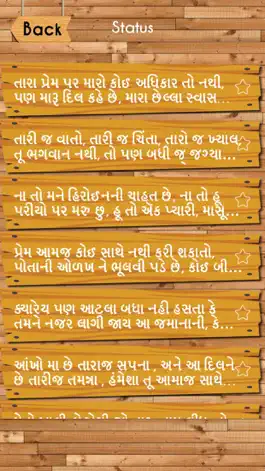 Back
Status
તારા પ્રેમ પર મારો કોઇ અધિકાર તો નથી,
પણ મારૂ દિલ કહે છે, મારા છેલ્લા સ્વાસ...
તારી જ વાતો, તારી જ ચિંતા, તારો જ ખ્યાલ,
તૂ ભગવાન નથી, તો પણ બધી જ જગ્યા...
ના તો મને હિરોઇનની ચાહત છે, ના તો હૂ
પરીયો પર મરુ છુ, હૂ તો એક પ્યારી, માસૂ...
પ્રેમ આમજ કોઇ સાથે નથી કરી શકાતો,
પોતાની ઓળખ ને ભૂલવી પડે છે, કાંઇ બી...
ક્યારેય પણ આટલા બધા નહી હસતા કે
તમને નજર લાગી જાય આ જમાનાની, કે...
આંખો મા છે તારાજ સપના , અને આ દિલને
છે તારીજ તમન્ના , હંમેશા તૂ આમાજ સાથે...